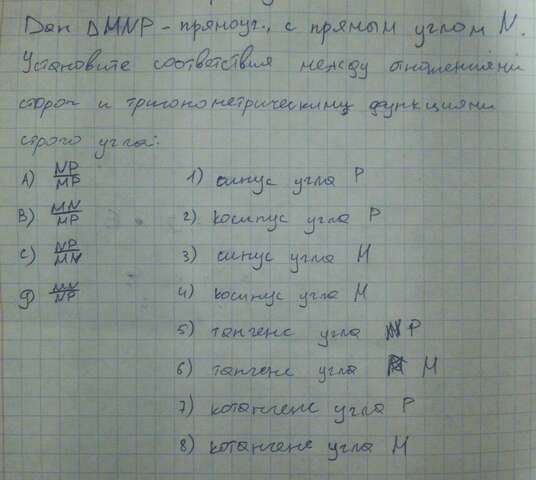 Дан ΔMNP - прямоуг., с прямым углом N.
Установите соответствия между отношениями
сторон и тригонометрическими функциями
острого угла:
A) NP/MP 1) синус угла P
B) MN/MP 2) косинус угла P
C) NP/MN 3) синус угла M
D) MN/NP 4) косинус угла M
5) тангенс угла P
6) тангенс угла M
7) котангенс угла P
8) котангенс угла M